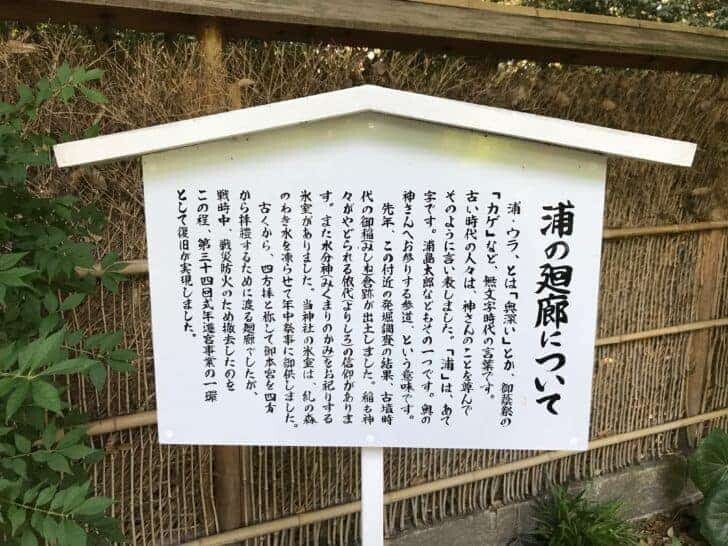 浦の廻廊について
浦・ウラ、とは「奥深い」とか、御蔭祭の
「カゲ」など、無文字時代の言葉です。
古い時代の人々は、神さんのことを尊んで
そのように言い表しました。「浦」は、あて
字です。浦島太郎などもその一つです。奥の
神さんへお参りする参道、という意味です。
先年、この付近の発掘調査の結果、古墳時
代の御稲(みしね)倉跡が出土しました。稲も神
々がやどられる依代(よりしろ)の信仰がありま
す。また水分神(みくまりのかみ)をお祀りする
氷室がありました。当神社の氷室は、糺の森
のわき水を凍らせて年中祭事に御供しました。
古くから、四方拝と称して御本宮を四方
から拝礼するために渡る廻廊でしたが、
戦時中、戦災防火のため撤去したのを
この程、第三十四回式年遷宮事業の一環
として復旧が実現しました。